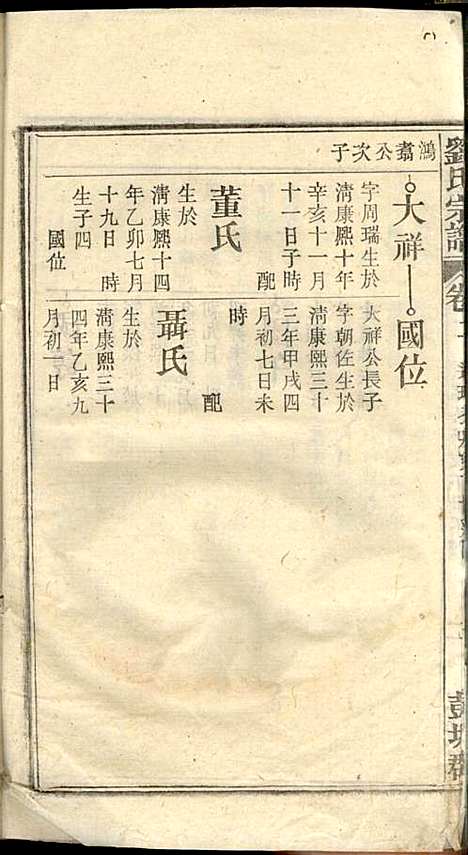 劉氏宗譜
卷
彭城郡
鴻翥公次子
大祥
字周瑞生於
清康熙十年
辛亥十一月
十一日子時
配
董氏
生於
清康熙十四
年乙卯七月
十九日 時
生子四
國位
國位
大祥公長子
字朝佐生於
清康熙三十
三年甲戌四
月初七日未
時 配
聶氏
生於
清康熙三十
四年乙亥九
月初一日